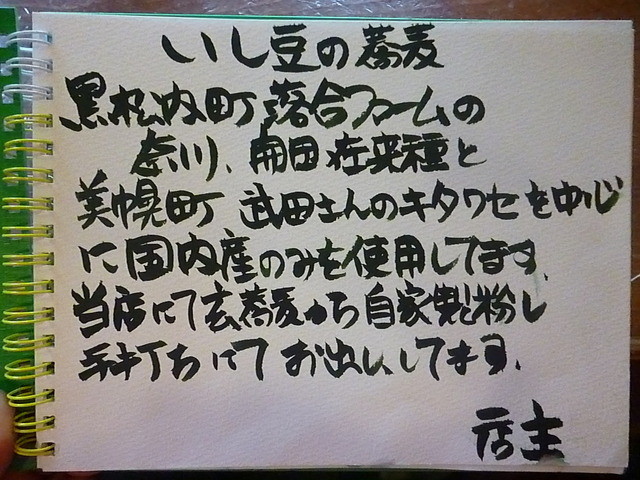 いし豆の蕎麦
黒松内町 落合ファームの
奈川、開田在来種と
美幌町 武田さんのキタワセを中心
に国内産のみを使用してます。
当店にて玄蕎麦から自家製粉し
手打ちにてお出ししてます。
店主